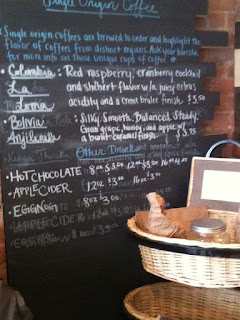 Single Origin Coffee
*Single origin coffees are brewed to order and highlight the
flavor of coffees from distinct regions. Ask your barista
for more info on these unique cups of coffee
• Colombia: Red raspberry, cranberry cocktail
La and sherbet flavor w/a juicy citrus
Loma acidity and a crème brulee finish $3.50
• Bolivia : Silky, Smooth, Balanced, Steady.
Anjilanaka Green grape, honey, and apple w/
a burnt caramel finish
Other Drinks
• HOT CHOCOLATE 8oz $2.50 12oz 16oz
• APPLE CIDER 12oz $3.00 16oz $3.50
• EGGNOG 8oz $3.00
• APPLE CIDER